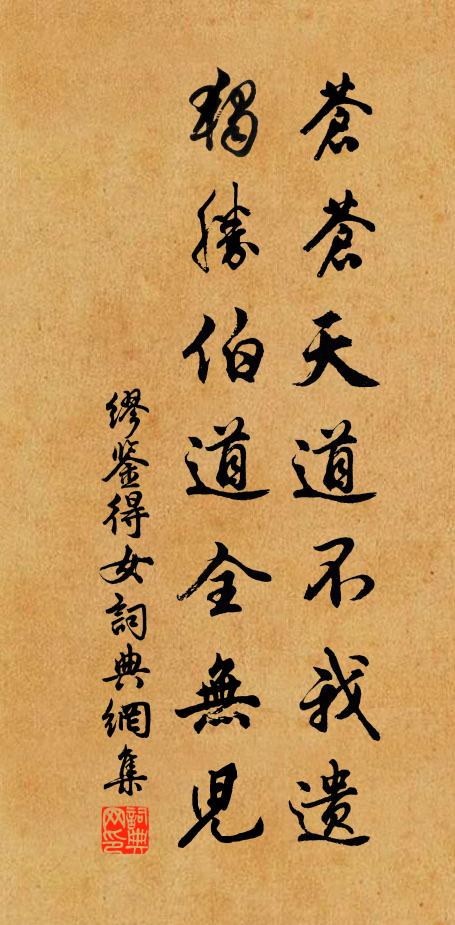 蒼蒼天道不我遺
獨勝伯道全無兒
繆鑒得女詞典網集
詞典网印